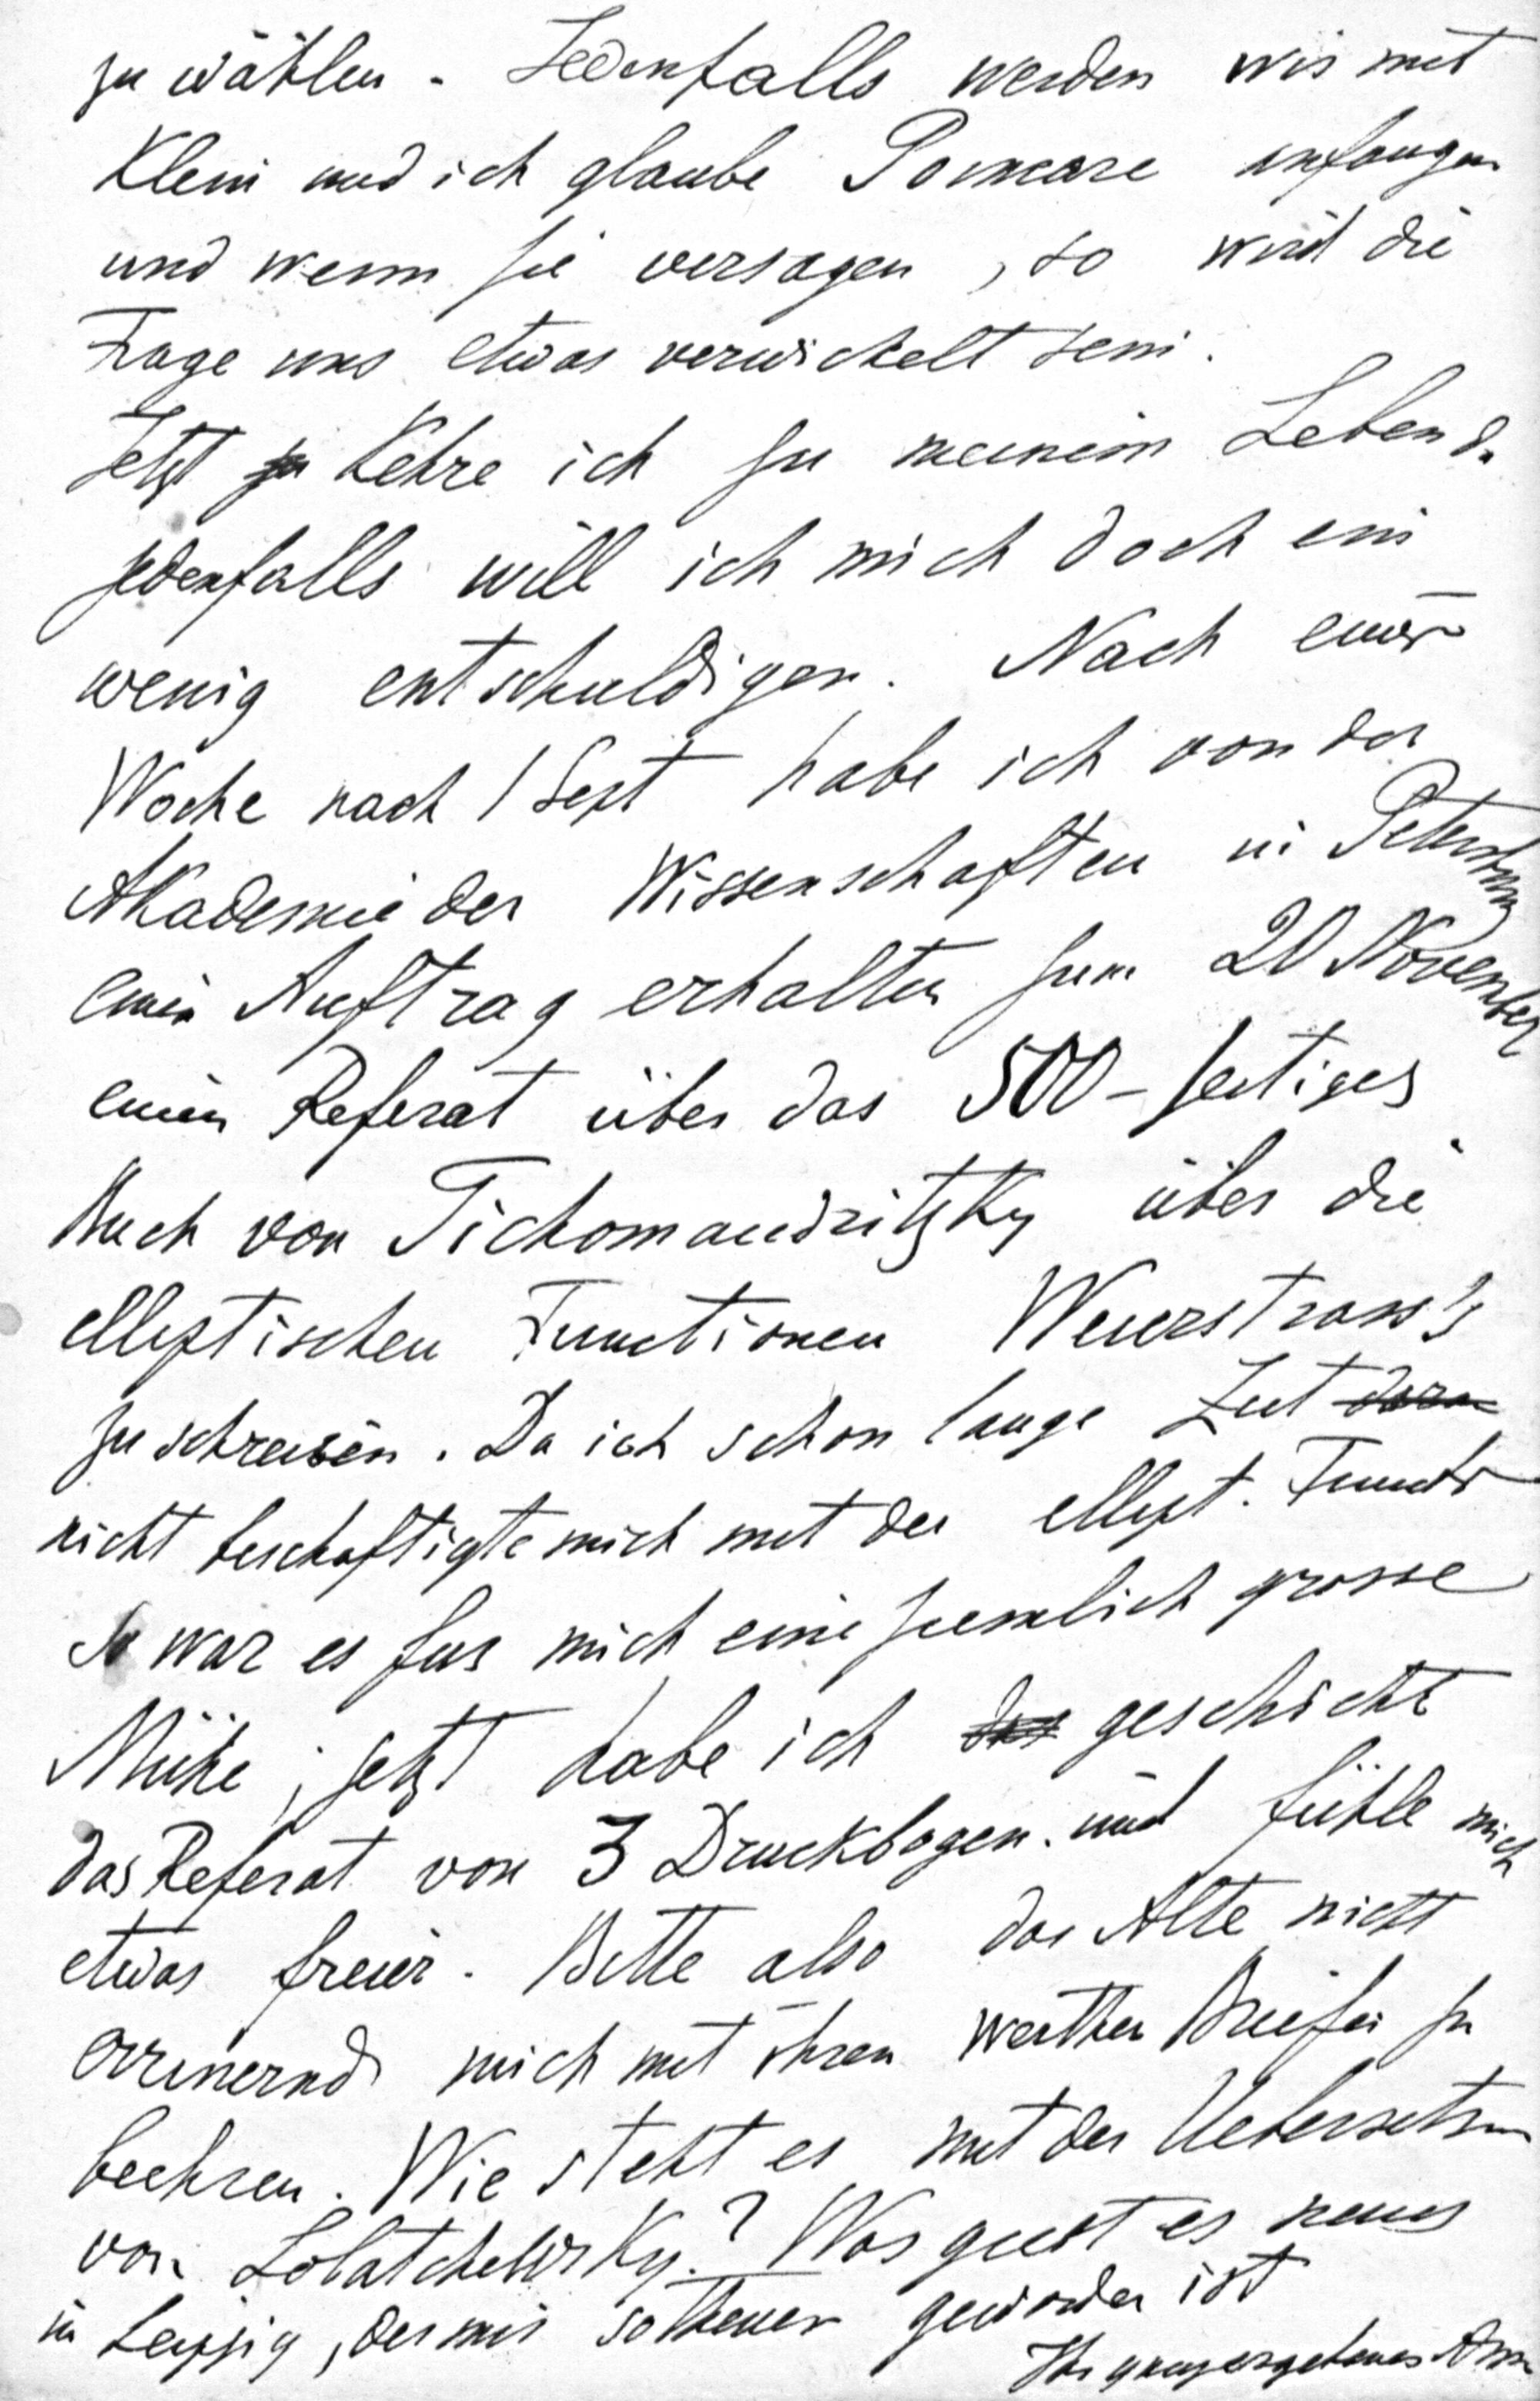 zu wählen. Jedenfalls werden wir mit
Klein und ich glaube Poincare anfangen
und wenn sie versagen, so wird die
Frage uns etwas verwickelt sein.
Jetzt zu kehre ich zu meinem Leben d.
jedenfalls will ich mich doch ein
wenig entschuldigen. Nach einer
Woche nach 1 Sept habe ich von der
Akademie der Wissenschaften in Petersburg
einen Auftrag erhalten zum 20 November
einen Referat über das 500-seitiges
Buch von Tichomandritzky über die
elliptischen Functionen Weierstrass's
zu schreiben. Da ich schon lange Zeit
nicht beschaftigte mich mit der ellipt. Funct
so war es fur mich eine ziemlich grosse
Mühe; jetzt habe ich geschickt
das Referat von 3 Druckbogen. und fühle mich
etwas freier. Bitte also das Alte nicht
errinernd mich mit ihren werthen Briefen zu
beehren. Wie steht es mit der Uebersetzun
von Lobatchewsky? Was giebt es neues
in Leipzig, der mir so theuer geworden ist
Ihr ganz ergebenes